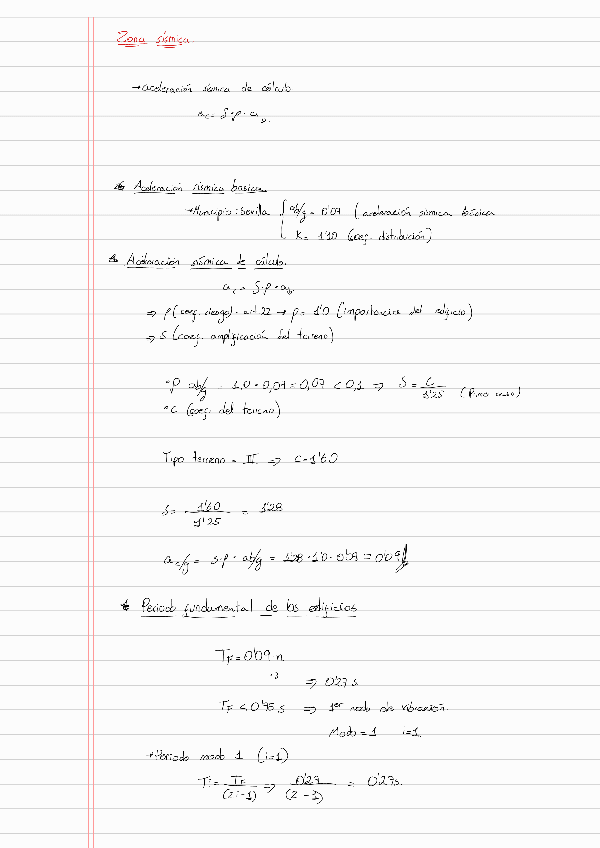 Zona sísmica.
→ aceleración sísmica de cálculo
ac = S·ρ·ab.
Aceleración sísmica básica
→ Municipio: Sevilla { ab/g = 0'07 (aceleración sísmica básica
K = 1'10 (coef. distribución)
Aceleración sísmica de cálculo.
ac = S·ρ·ab.
⇒ ρ (coef. riesgo). art 2.2 → ρ = 1'0 (importancia del edificio)
⇒ S (coef. amplificación del terreno)
ρ ab/g = 1,0 · 0,07 = 0,07 < 0,1 ⇒ S = C/1'25 (Primer caso)
C (coef. del terreno)
Tipo terreno = II ⇒ C = 1'60
S = 1'60/1'25 = 1'28
ac/g = S·ρ·ab/g = 1'28 · 1'0 · 0'07 = 0'09
Periodo fundamental de los edificios
TF = 0'09 n
⇒ 0'27 s
TF < 0'75 s ⇒ 1er modo de vibración.
Modo = 1 i=1.
→ Periodo modo 1 (i=1)
Ti = TF/(2i-1) ⇒ 0'27/(2-1) = 0'27s.